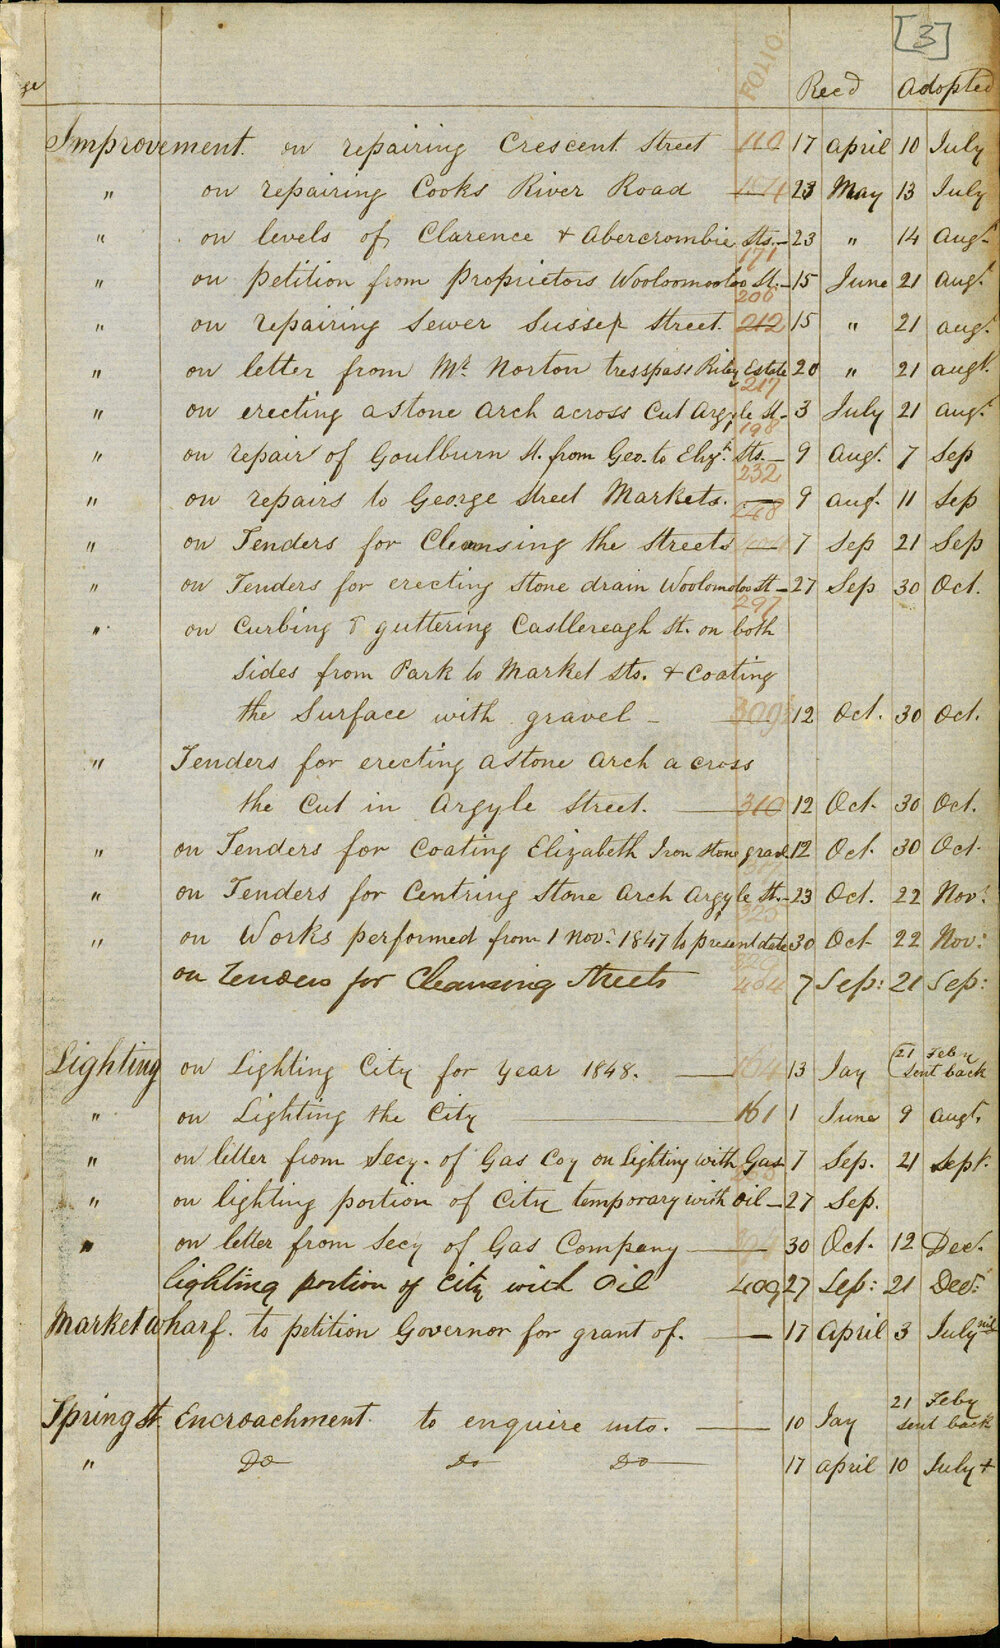 [3]
FOLIO. Recd adopted
Improvement. on repairing Crescent Street 110 17 april 10 July
" on repairing Cooks River Road 23 May 13 July
" on levels of Clarence & Abercrombie Sts. - 23 " 14 augt
171
" on petition from Proprietors Wooloomooloo St. - 15 June 21 augt
206
" on repairing Sewer Sussex Street. 212 15 " 21 augt.
" on letter from Mr. Norton tresspass Riley Estate 20 " 21 augt.
217
" on erecting a stone arch across Cut Argyle St - 3 July 21 augt
198
" on repair of Goulburn St. from Geo. to Elizth. Sts. - 9 augt. 7 Sep
232
" on repairs to George Street Markets. 9 augt. 11 Sep
268
" on Tenders for Cleansing the Streets 7 Sep 21 Sep
" on Tenders for erecting Stone drain Woolomoloo St - 27 Sep 30 Oct.
297
" on Curbing & guttering Castlereagh St. on both
sides from Park to Market Sts. & Coating
the Surface with gravel - 309 12 Oct. 30 Oct.
" Tenders for erecting a stone arch across
the Cut in Argyle Street. 310 12 Oct. 30 Oct.
" on Tenders for Coating Elizabeth Iron stone gravl 12 Oct. 30 Oct.
" on Tenders for Centring Stone Arch Argyle St. - 23 Oct. 22 Novr.
325
" on Works performed from 1 Novr. 1847 to present date 30 Oct 22 Novr.
on Tenders for Cleansing Streets 404 7 Sep: 21 Sep:
Lighting on Lighting City for year 1848. 164 13 Jay 21 Feby
sent back
" on Lighting the City 161 1 June 9 augt.
" on letter from Secy. of Gas Coy on Lighting with Gas 7 Sep. 21 Sept.
" on lighting portion of City temporary with Oil - 27 Sep.
" on letter from Secy of Gas Company 30 Oct. 12 Dec.
lighting portion of City with Oil 409 27 Sep: 21 Decr.
Market Wharf. to petition Governor for grant of. 17 april 3 July nil
Spring St. Encroachment. to enquire into. 10 Jay 21 Feby
sent back
" Do Do Do 17 april 10 July +